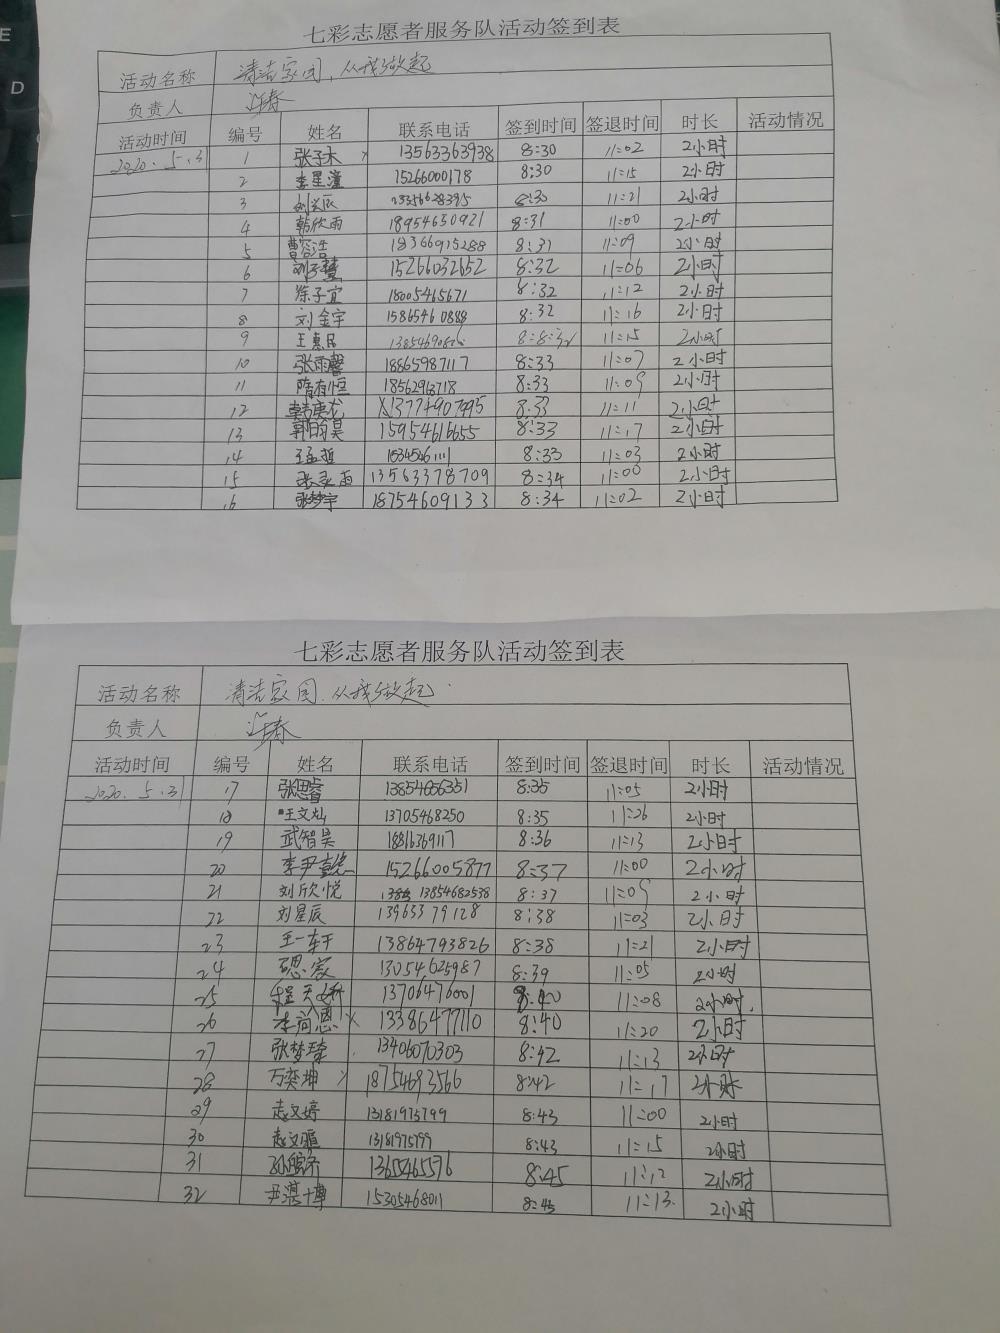 七彩志愿者服务队活动签到表
活动名称 清洁家园，从我做起
负责人
活动时间 编号 姓名 联系电话 签到时间 签退时间 时长 活动情况
2020.5.31 1 张子木 13563363938 8:30 11:02 2小时
2 李星潼 15266000178 8:30 11:15 2小时
3 8:30 11:21 2小时
4 韩欣雨 18954630921 8:31 11:00 2小时
5 曹容浩 18366915288 8:31 11:09 2小时
6 15266032652 8:32 11:06 2小时
7 徐子宜 18005465671 8:32 11:12 2小时
8 刘金宇 15865460888 8:32 11:16 2小时
9 王惠民 11:15 2小时
10 张雨馨 18865987117 8:33 11:07 2小时
11 隋有恒 8:33 11:09 2小时
12 8:33 11:11 2小时
13 郭昀昊 15954616655 8:33 11:17 2小时
14 王孟哲 8:33 11:03 2小时
15 13563378709 8:34 11:00 2小时
16 张梦宇 18754609133 8:34 11:02 2小时
七彩志愿者服务队活动签到表
活动名称 清洁家园，从我做起
负责人
活动时间 编号 姓名 联系电话 签到时间 签退时间 时长 活动情况
2020.5.31 17 张思睿 13854656351 8:35 11:05 2小时
18 王文灿 13705468250 8:35 11:26 2小时
19 武智昊 8:36 11:13 2小时
20 15266005877 8:37 11:00 2小时
21 刘欣悦 13854682538 8:37 11:09 2小时
22 刘星辰 13963379128 8:38 11:03 2小时
23 13864793826 8:38 11:21 2小时
24 13054625987 8:39 11:05 2小时
25 13706476001 8:40 11:08 2小时
26 13386477110 8:40 11:20 2小时
27 张梦臻 13406070303 8:42 11:13 2小时
28 万奕坤 18754693566 8:42 11:17 2小时
29 赵文婷 13181975799 8:43 11:00 2小时
30 13181975799 8:43 11:15 2小时
31 1365465576 8:45 11:12 2小时
32 尹湛博 15305468011 8:45 11:13 2小时